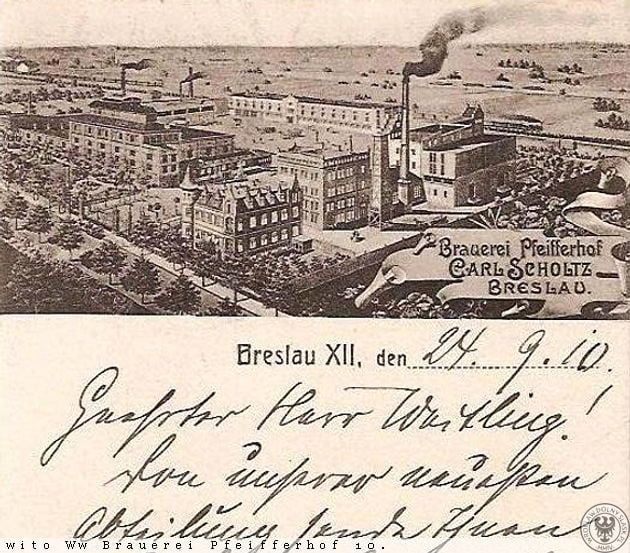 Brauerei Pfeifferhof
CARL SCHOLTZ
BRESLAU.
Breslau XII, den 24. 9. 10.
Geehrter Herr Weitling!
Von unserer neuesten
Abteilung sende Ihnen
wito Ww Brauerei Pfeifferhof 10.